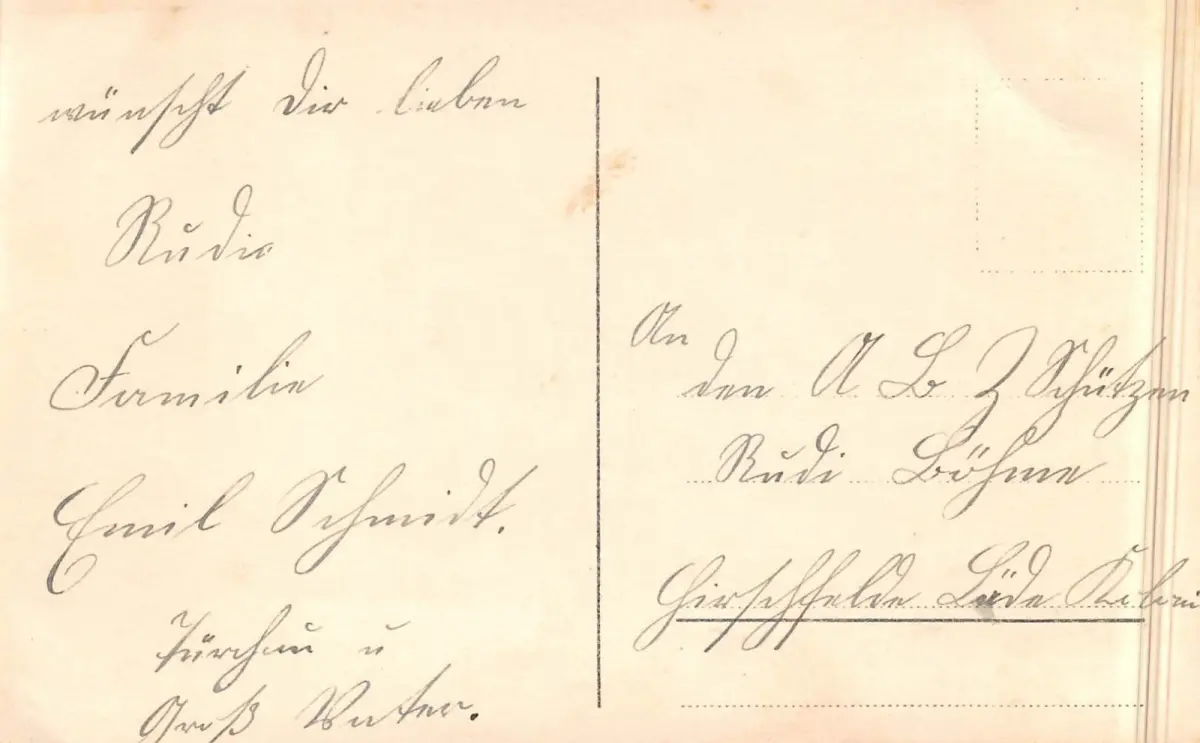 wünscht Dir lieben
Rudi
Familie
Emil Schmidt.
Türchau u
Groß Vater.
An
den A B Z Schützen
Rudi Böhme
Hirschfelde